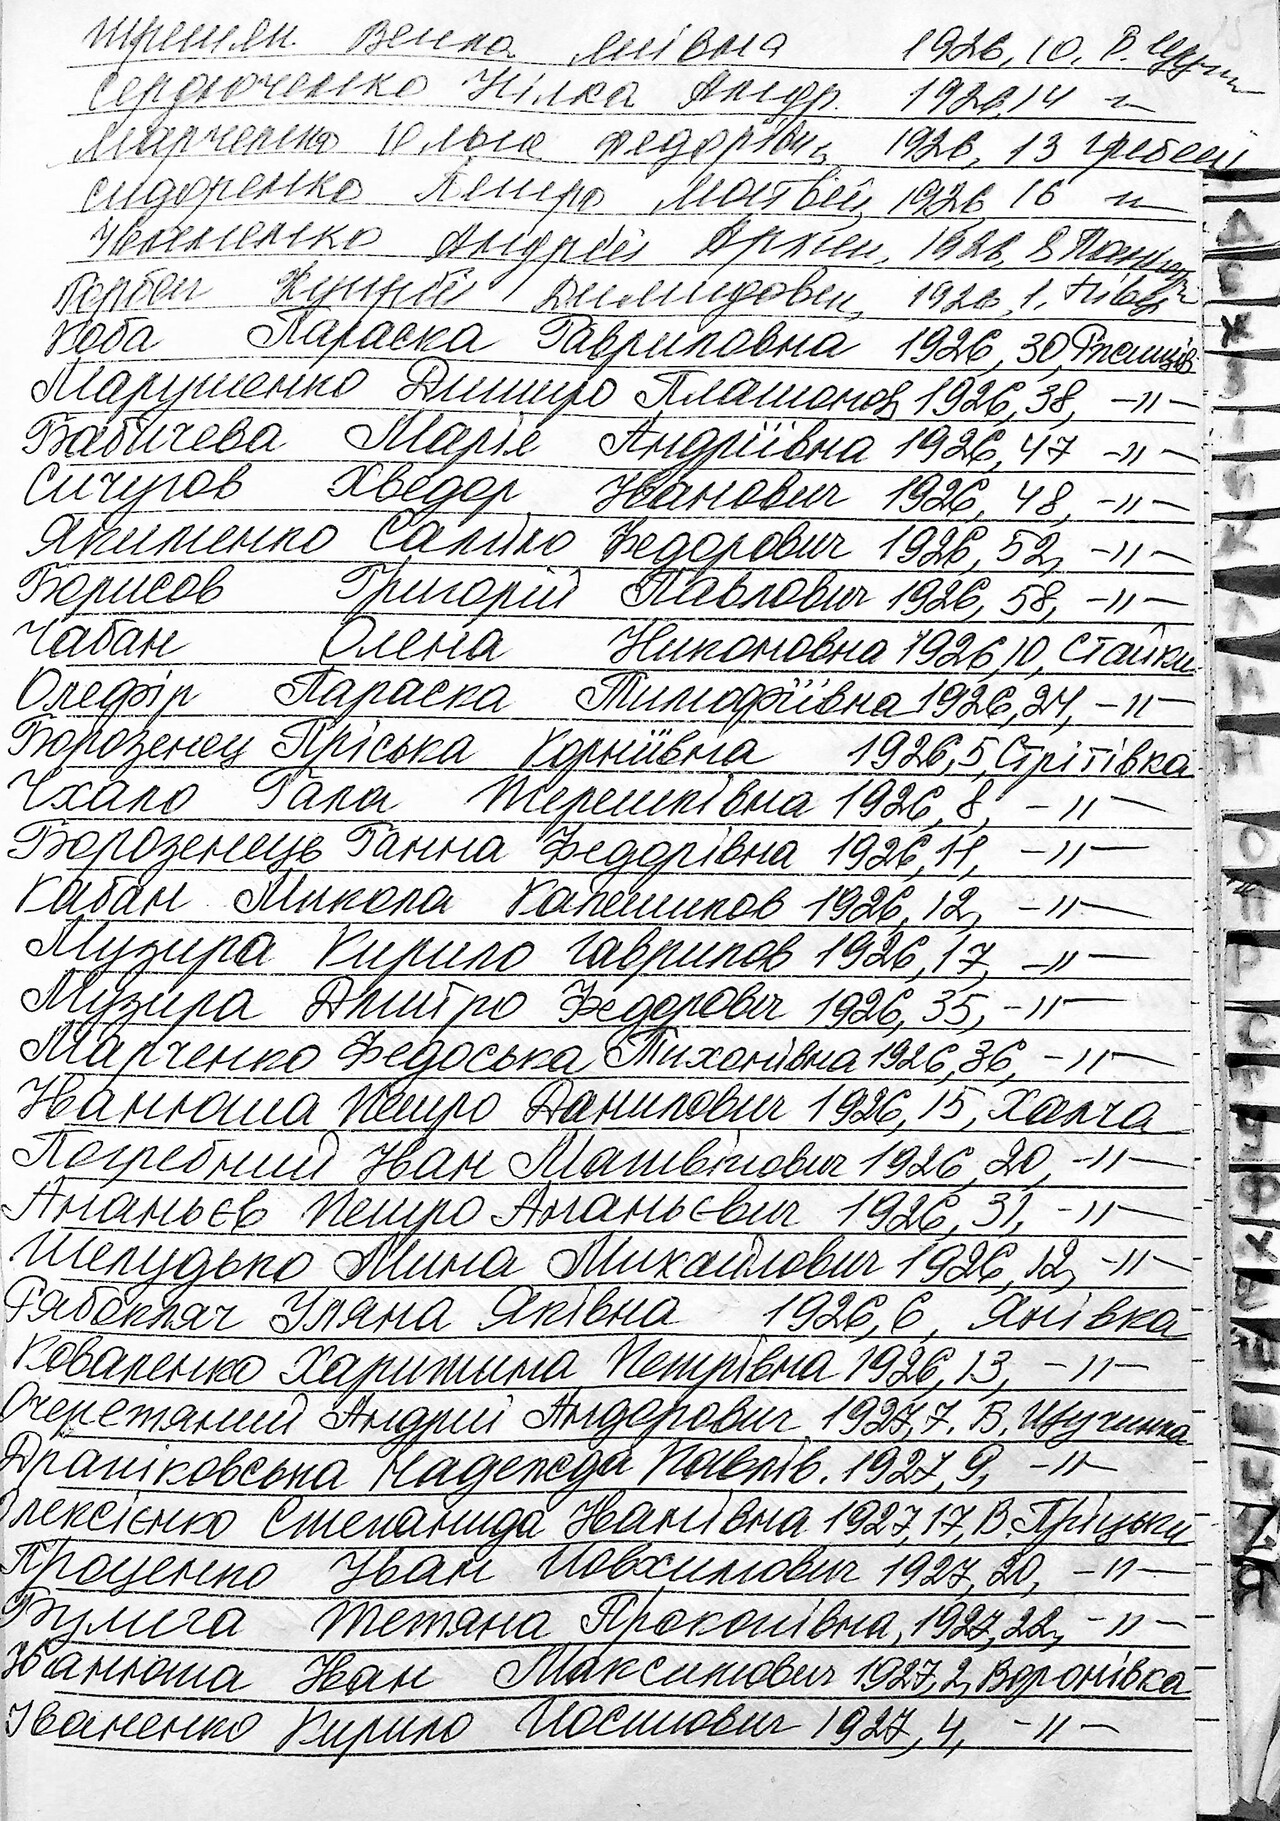 1926, 10, В.
Сердюченко Кілка Андр. 1926, 14 -"-
Марченко Ольга Федорівн 1926, 13 Гребені
Сидоренко Петро Матвій 1926, 16 -"-
Іваненко Андрій Архип, 1926, 8
Горбач Демидович, 1926, 1,
Коба Параска Гаврилівна 1926, 30, Ржищів
Марушенко Дмитро Платонов 1926, 38, -"-
Бабичева Марія Андріївна 1926, 47 -"-
Сичугов Хведор Іванович 1926, 48, -"-
Якименко Саливо Федорович 1926, 52, -"-
Борисов Григорій Павлович 1926, 58, -"-
Чабан Олена Никоновна 1926, 10, Стайки
Олефір Параска Тимофіївна 1926, 24, -"-
Борозенец Пріська Корніївна 1926, 5, Стрітівка
Чхало Гала Терешківна 1926, 8, -"-
Борозенець Ганна Федорівна 1926, 11, -"-
Кабан Микола Калеников 1926, 12, -"-
Музира Кирило Гаврилов 1926, 17, -"-
Музира Дмитро Федорович 1926, 35, -"-
Марченко Федоська Тихонівна 1926, 36, -"-
Іванюша Петро Данилович 1926, 15, Халча
Погребний Іван Матвійович 1926, 20, -"-
Ананьєв Петро Ананьєвич 1926, 31, -"-
Шелудько Мина Михайлович 1926, 12, -"-
Рябокляч Уляна Яківна 1926, 6, Янівка
Коваленко Харитина Петрівна 1926, 13, -"-
Очеретяний Андрій Андерович 1927, 7. В. Щучинка
Драніковська Надежда Павлів. 1927, 9, -"-
Олексієнко Степанида Іванівна 1927, 17, В. Пріцьки
Проценко Іван Йовхимович 1927, 20, -"-
Булига Тетяна Прокопівна, 1927, 22, -"-
Іванюша Іван Максимович 1927, 2, Воронівка
Іваненко Кирило Йосипович 1927, 4, -"-